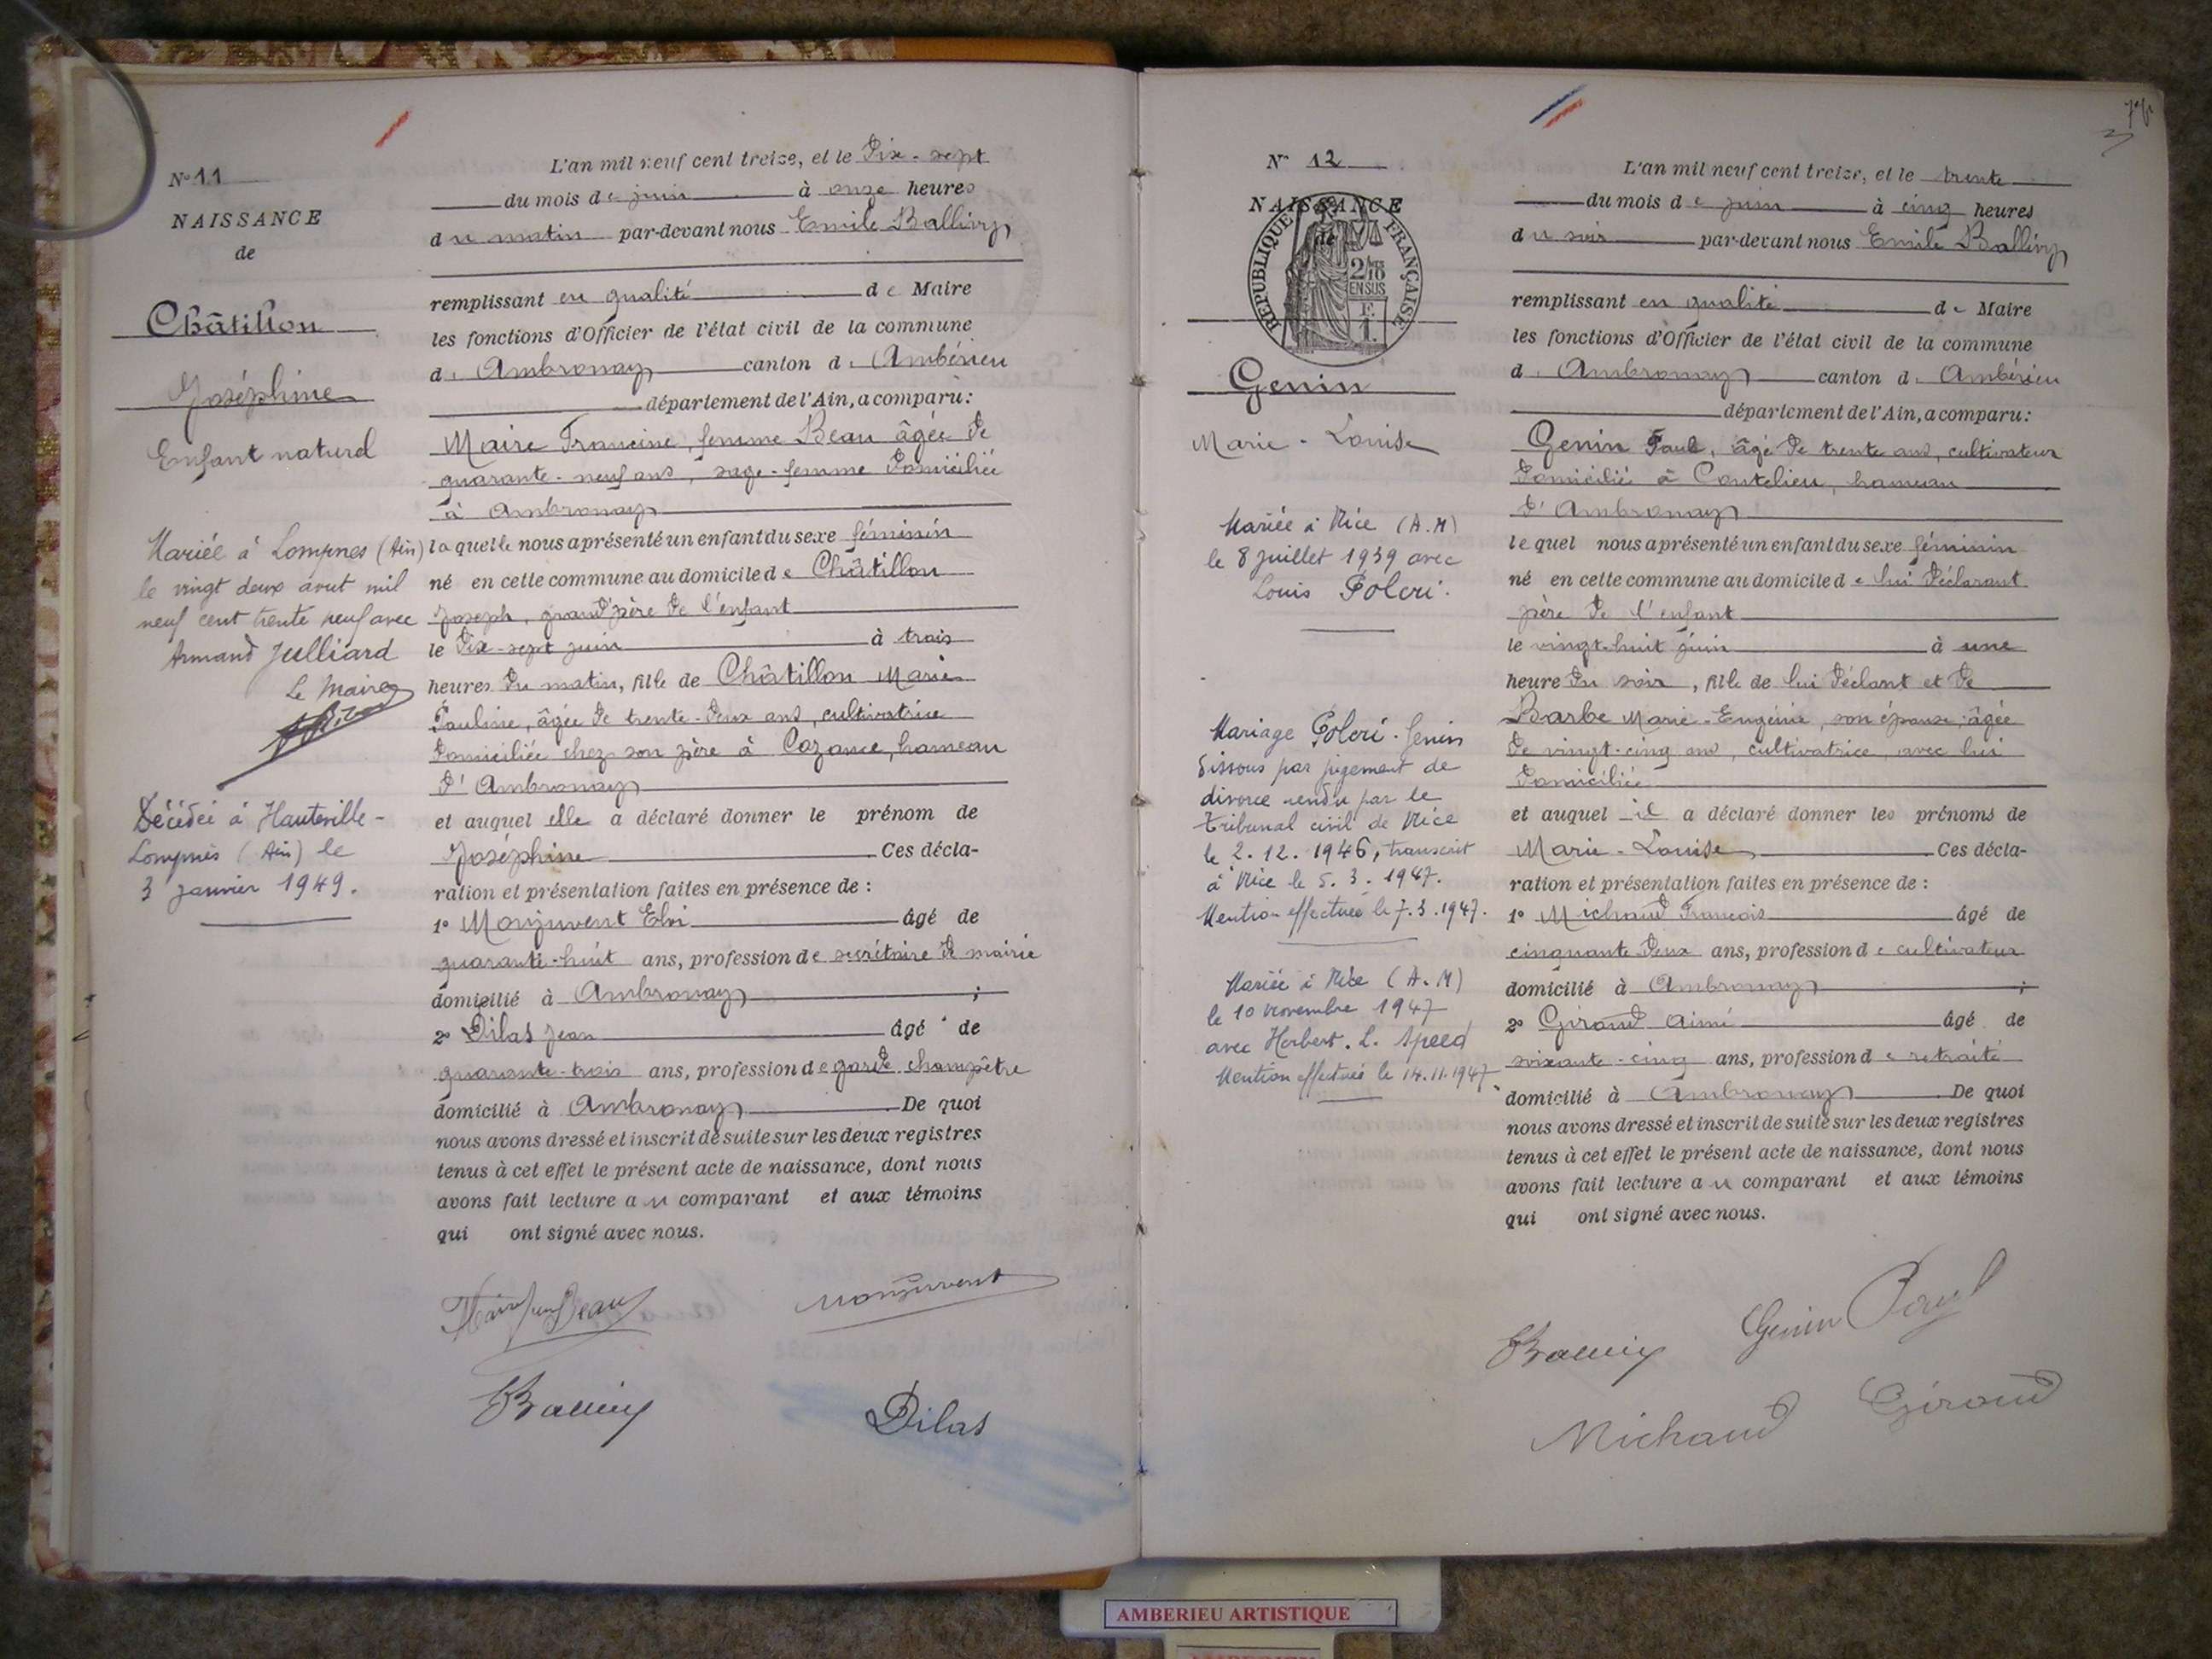 N° 11
NAISSANCE
de
Châtillon
Joséphine
Enfant naturel
Mariée à Lompnes (Ain)
le vingt deux août mil
neuf cent trente neuf avec
Armand Julliard
Le Maire
Décédée à Hauteville-
Lompnès (Ain) le
3 janvier 1949.
L'an mil neuf cent treize, et le dix-sept
du mois de juin à onze heures
du matin par-devant nous Emile Ballivy
remplissant en qualité de Maire
les fonctions d'Officier de l'état civil de la commune
d' Ambronay canton d' Ambérieu
département de l'Ain, a comparu:
Maire Francine, femme Beau âgée de
quarante-neuf ans, sage-femme domiciliée
à Ambronay
laquelle nous a présenté un enfant du sexe féminin
né en cette commune au domicile de Châtillon
Joseph, grand'père de l'enfant
le dix-sept juin à trois
heures du matin, fille de Châtillon Marie
Pauline, âgée de trente-deux ans, cultivatrice
domiciliée chez son père à Cozance, hameau
d' Ambronay
et auquel elle a déclaré donner le prénom de
Joséphine Ces décla-
ration et présentation faites en présence de :
1° Monjuvent Eloi âgé de
quarante-huit ans, profession de secrétaire de mairie
domicilié à Ambronay ;
2° Dilas Jean âgé de
quarante-trois ans, profession de garde champêtre
domicilié à Ambronay De quoi
nous avons dressé et inscrit de suite sur les deux registres
tenus à cet effet le présent acte de naissance, dont nous
avons fait lecture au comparant et aux témoins
qui ont signé avec nous.
Beau Monjuvent
Ballivy Dilas
N° 12
NAISSANCE
de
REPUBLIQUE FRANÇAISE
2/10
EN SUS
Genin
Marie-Louise
Mariée à Nice (A.M)
le 8 juillet 1939 avec
Louis Poleri.
Mariage Poleri-Genin
dissous par jugement de
divorce rendu par le
tribunal civil de Nice
le 2.12.1946, transcrit
à Nice le 5.3.1947.
Mention effectuée le 7.3.1947.
Mariée à Nice (A.M)
le 10 novembre 1947
avec Herbert. L. Speed
Mention effectuée le 14.11.1947
L'an mil neuf cent treize, et le trente
du mois de juin à cinq heures
du soir par-devant nous Emile Ballivy
remplissant en qualité de Maire
les fonctions d'Officier de l'état civil de la commune
d' Ambronay canton d' Ambérieu
département de l'Ain, a comparu:
Genin Paul, âgé de trente ans, cultivateur
domicilié à Coutelieu, hameau
d' Ambronay
lequel nous a présenté un enfant du sexe féminin
né en cette commune au domicile de lui déclarant
père de l'enfant
le vingt-huit juin à une
heure du soir, fille de lui déclant et de
Barbe Marie-Eugénie, son épouse, âgée
de vingt-cinq ans, cultivatrice, avec lui
domiciliée
et auquel il a déclaré donner les prénoms de
Marie-Louise Ces décla-
ration et présentation faites en présence de :
1° Michaud François âgé de
cinquante deux ans, profession de cultivateur
domicilié à Ambronay ;
2° Giraud Aimé âgé de
soixante-cinq ans, profession de retraité
domicilié à Ambronay De quoi
nous avons dressé et inscrit de suite sur les deux registres
tenus à cet effet le présent acte de naissance, dont nous
avons fait lecture au comparant et aux témoins
qui ont signé avec nous.
Ballivy Genin Paul
Michaud Giraud
AMBERIEU ARTISTIQUE